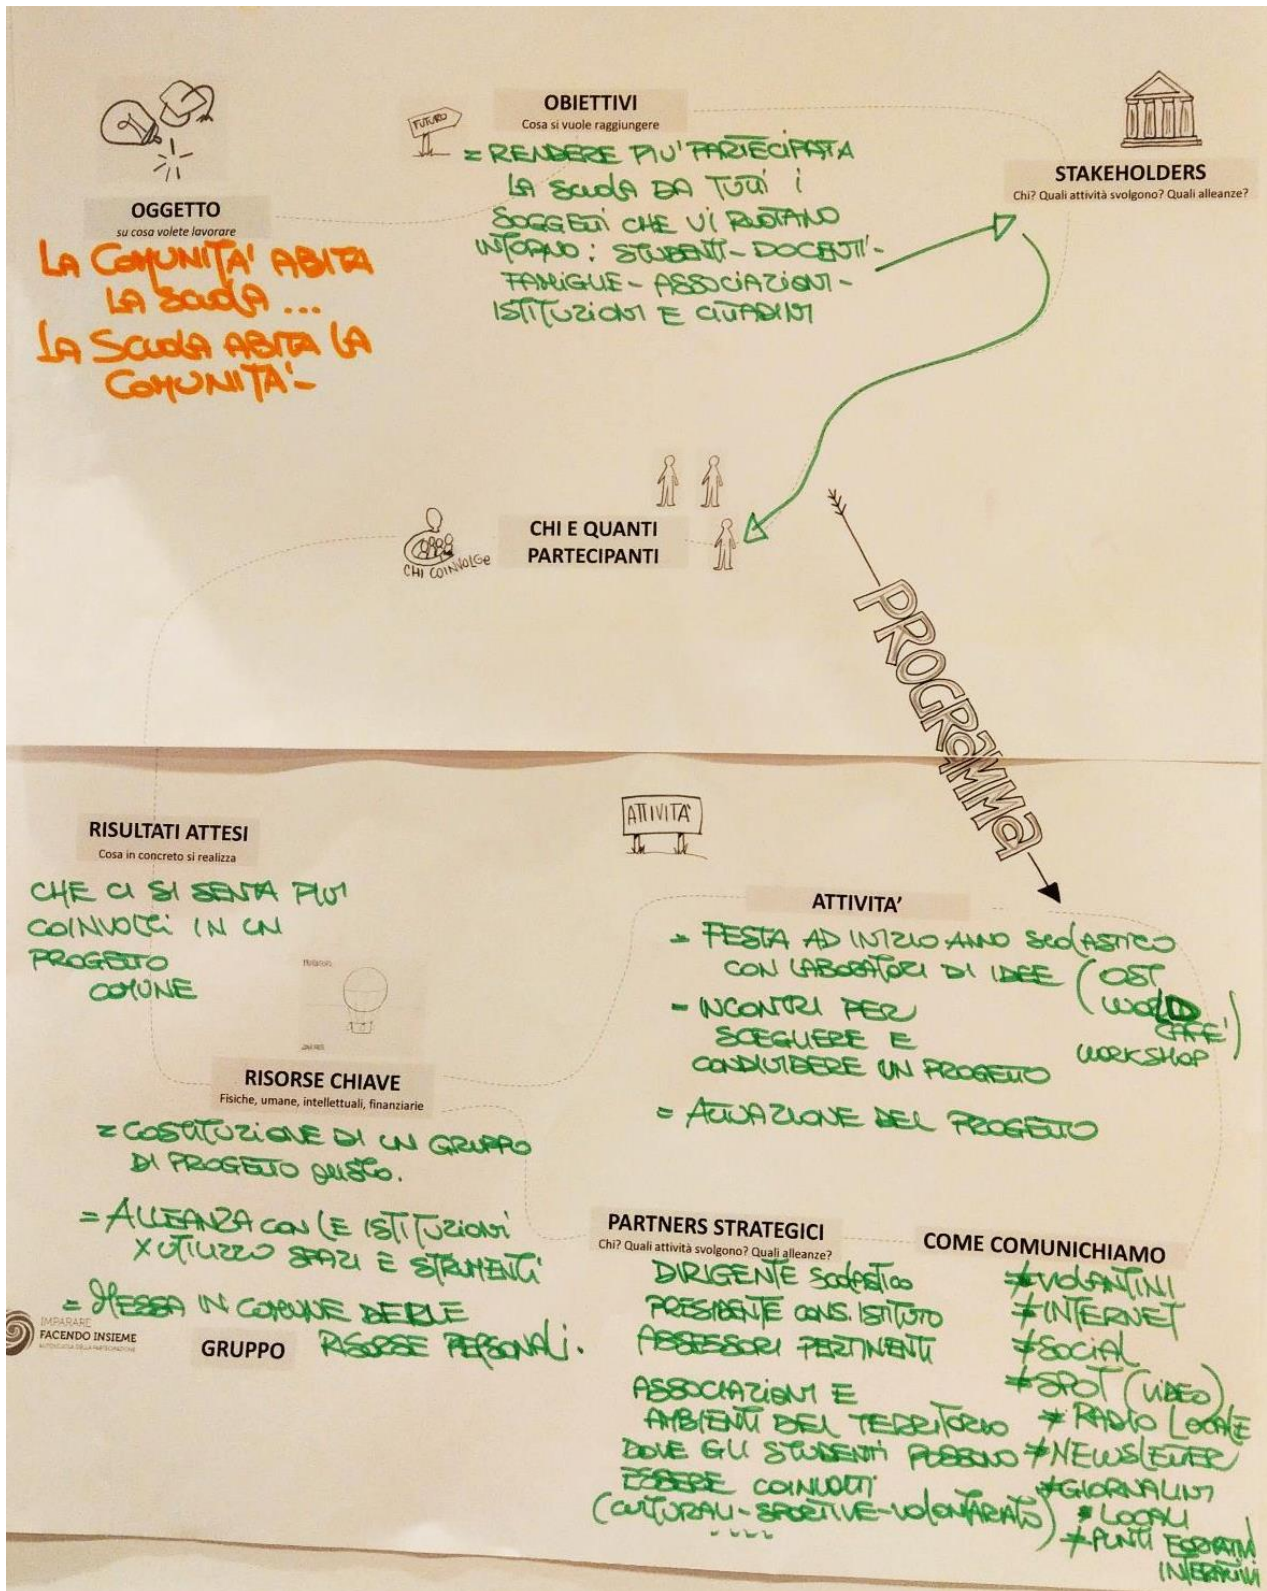 OGGETTO
su cosa volete lavorare
LA COMUNITA' ABITA
LA SCUOLA ...
LA SCUOLA ABITA LA
COMUNITA' -
FUTURO
OBIETTIVI
Cosa si vuole raggiungere
= RENDERE PIU' PARTECIPATA
LA SCUOLA DA TUTTI I
SOGGETTI CHE VI RUOTANO
INTORNO : STUDENTI - DOCENTI -
FAMIGLIE - ASSOCIAZIONI -
ISTITUZIONI E CITTADINI
STAKEHOLDERS
Chi? Quali attività svolgono? Quali alleanze?
CHI COINVOLGE
CHI E QUANTI
PARTECIPANTI
PROGRAMMA
RISULTATI ATTESI
Cosa in concreto si realizza
CHE CI SI SENTA PIU'
COINVOLTI IN UN
PROGETTO
COMUNE
ATTIVITA'
ATTIVITA'
= FESTA AD INIZIO ANNO SCOLASTICO
CON LABORATORI DI IDEE ( OST
WORLD
CAFE' )
WORKSHOP
- INCONTRI PER
SCEGLIERE E
CONDIVIDERE UN PROGETTO
= ATTUAZIONE DEL PROGETTO
RISORSE CHIAVE
Fisiche, umane, intellettuali, finanziarie
= COSTITUZIONE DI UN GRUPPO
DI PROGETTO MISTO.
= ALLEANZA CON LE ISTITUZIONI
X UTILIZZO SPAZI E STRUMENTI
= MESSA IN COMUNE DELLE
RISORSE PERSONALI.
IMPARARE
FACENDO INSIEME
GRUPPO
PARTNERS STRATEGICI
Chi? Quali attività svolgono? Quali alleanze?
DIRIGENTE SCOLASTICO
PRESIDENTE CONS. ISTITUTO
ASSESSORI PERTINENTI
ASSOCIAZIONI E
AMBIENTI DEL TERRITORIO
DOVE GLI STUDENTI POSSONO
ESSERE COINVOLTI
(CULTURALI - SPORTIVE - VOLONTARIATO)
....
COME COMUNICHIAMO
# VOLANTINI
# INTERNET
# SOCIAL
# SPOT (VIDEO)
# RADIO LOCALE
# NEWSLETTER
# GIORNALINI
LOCALI
# PUNTI